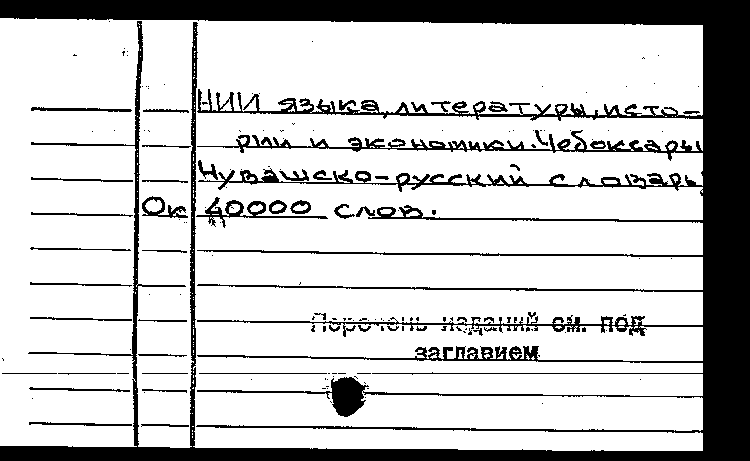 НИИ языка, литературы, исто-
рии и экономики. Чебоксары
Чувашско-русский словарь;
Ок 40000 слов.
Перечень изданий см. под
заглавием